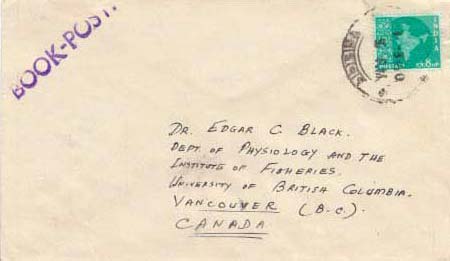 BOOK-POST.
INDIA
POSTAGE 8 nP
DR. EDGAR C. BLACK.
DEPT. OF PHYSIOLOGY AND THE
INSTITUTE OF FISHERIES.
UNIVERSITY OF BRITISH COLUMBIA.
VANCOUVER (B.C.).
CANADA